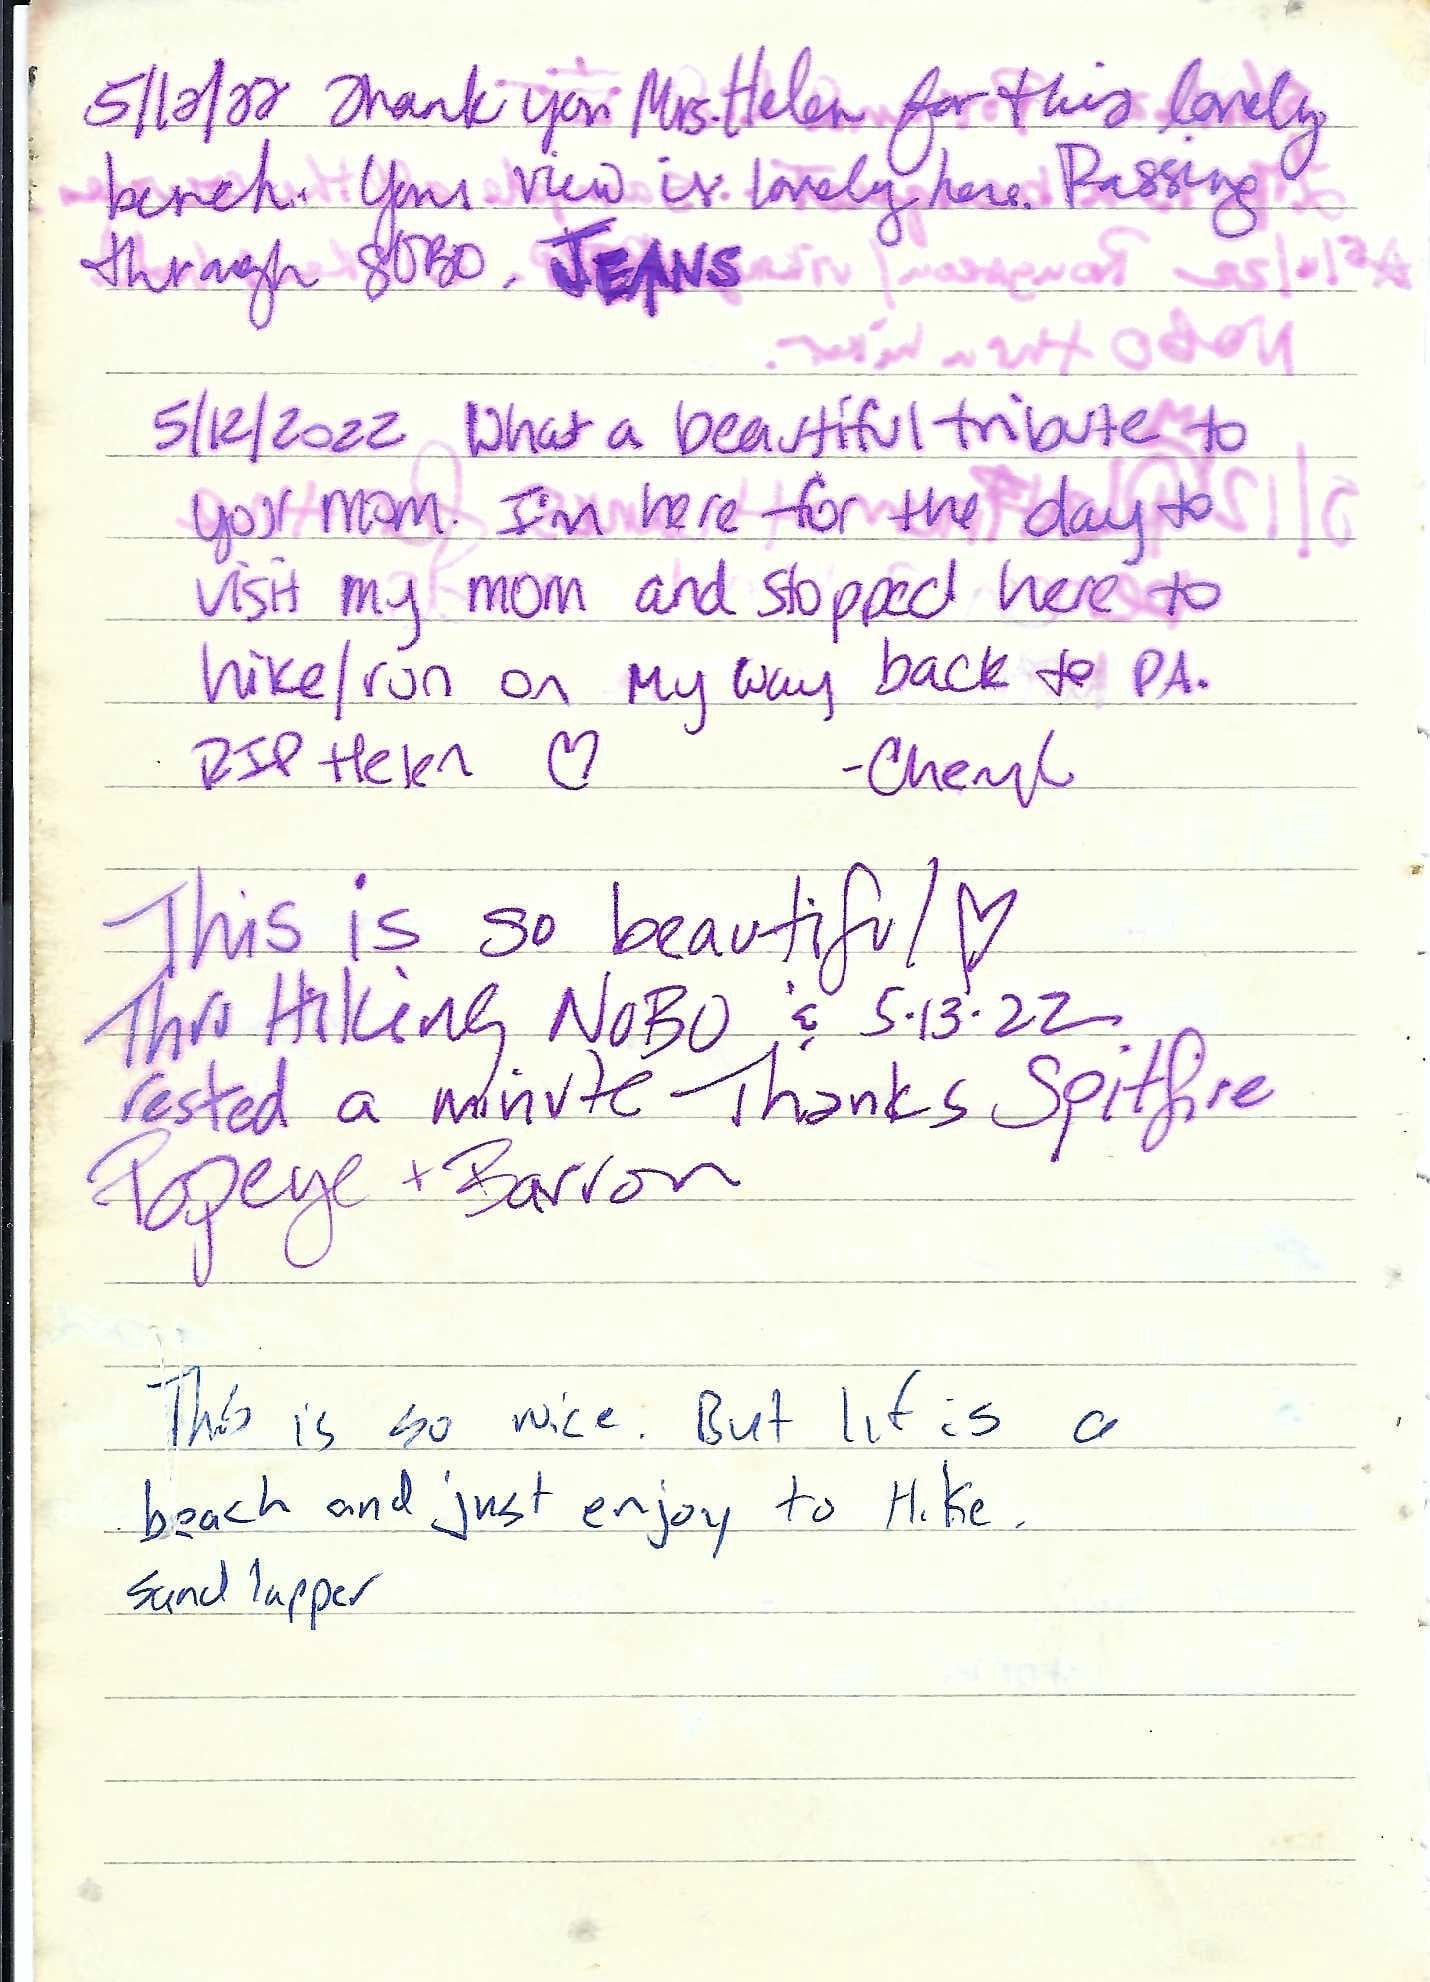 5/12/22 Thank you Mrs. Helen for this lovely
bench. Your view is lovely here. Passing
through SOBO. JEANS
5/12/2022 What a beautiful tribute to
your mom. I'm here for the day to
visit my mom and stopped here to
hike/run on my way back to PA.
RIP Helen ♡ -Cheryl
This is so beautiful ♡
Thru Hiking NoBO & 5.13.22
rested a minute - Thanks Spitfire
Popeye + Barron
This is so nice. But lif is a
beach and just enjoy to Hike.
sand lapper